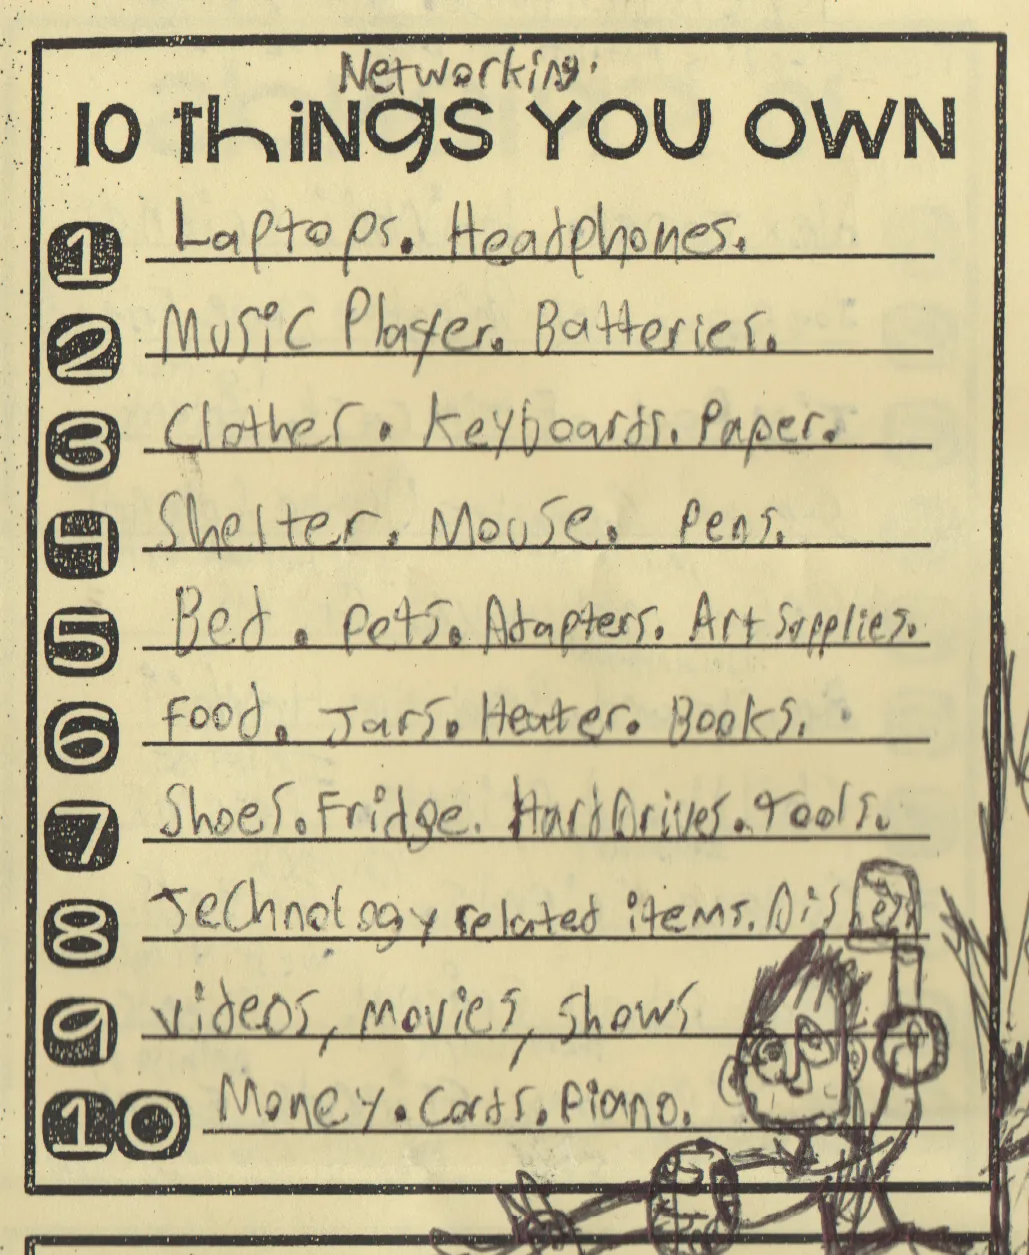 Networking.
10 THINGS YOU OWN
1 Laptops. Headphones.
2 Music Player. Batteries.
3 Clothes. Keyboards. Paper.
4 Shelter. Mouse. Pens.
5 Bed. Pets. Adapters. Art Supplies.
6 Food. Jars. Heater. Books.
7 Shoes. Fridge. Hard Drives. Tools.
8 Technology related items. Dishes.
9 videos, movies, shows
10 Money. Cards. Piano.